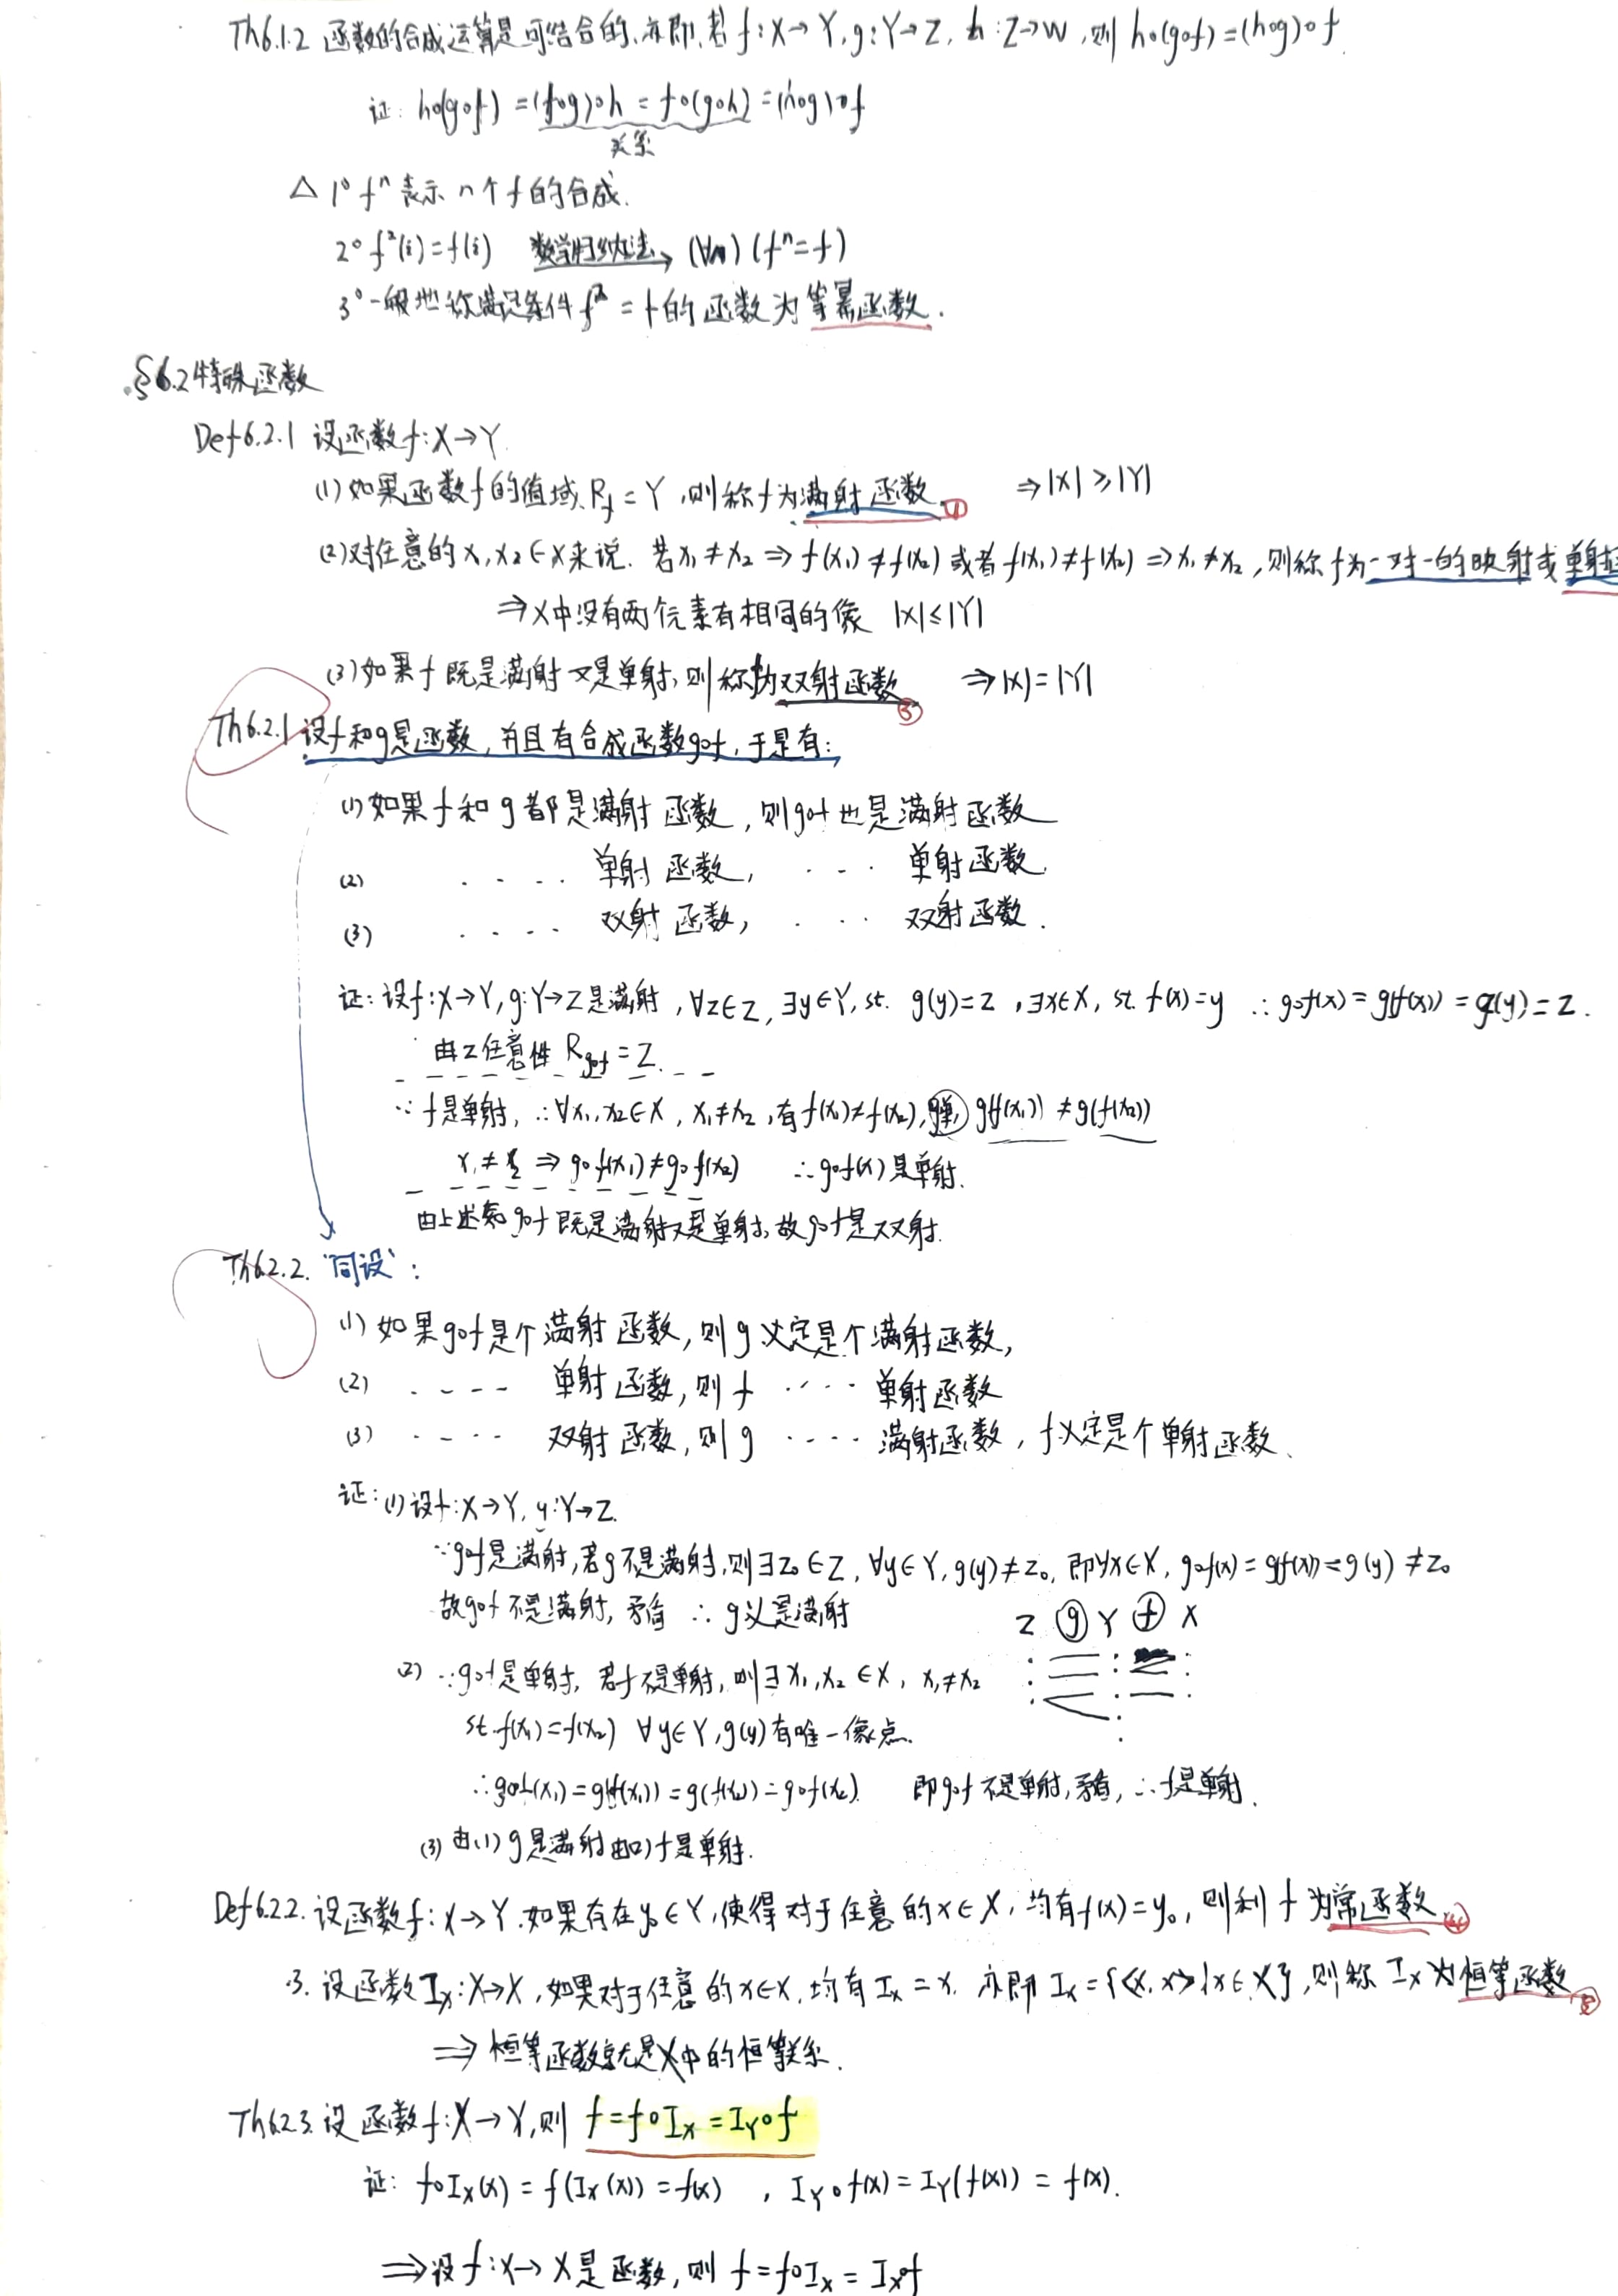 Th6.1.2 函数的合成运算是可结合的,亦即,若 f:X→Y,g:Y→Z,h:Z→W,则 h∘(g∘f)=(h∘g)∘f.
证: h∘(g∘f) =(f∘g)∘h = f∘(g∘h) =(h∘g)∘f
关系
△ 1° fⁿ 表示 n个f的合成.
2° f²(i)=f(i) 数学归纳法→ (∀n)(fⁿ=f)
3° 一般地称满足条件 f² = f的函数为等幂函数.
§6.2特殊函数
Def6.2.1 设函数f:X→Y.
(1)如果函数f的值域R_f=Y,则称f为满射函数. ① ⇒|X|≥|Y|
(2)对任意的x₁x₂∈X来说.若x₁≠x₂ ⇒ f(x₁)≠f(x₂)或者f(x₁)≠f(x₂) ⇒x₁≠x₂,则称f为一对一的映射或单射
⇒X中没有两个元素有相同的像 |X|≤|Y|
(3)如果f既是满射又是单射,则称f为双射函数 ③ ⇒|X|=|Y|
Th6.2.1 设f和g是函数,并且有合成函数g∘f,于是有:
(1)如果f和g都是满射函数,则g∘f也是满射函数
(2) ···· 单射函数, ··· 单射函数.
(3) ···· 双射函数, ··· 双射函数.
证:设f:X→Y,g:Y→Z是满射,∀z∈Z,∃y∈Y,st. g(y)=z,∃x∈X,st. f(x)=y ∴g∘f(x)=g(f(x))=g(y)=z.
由z任意性 R_{g∘f}=Z.
∵f是单射,∴∀x₁,x₂∈X,x₁≠x₂,有f(x₁)≠f(x₂),g单,g(f(x₁))≠g(f(x₂))
x₁≠x₂ ⇒ g∘f(x₁)≠g∘f(x₂) ∴g∘f(x)是单射.
由上述知g∘f既是满射又是单射,故g∘f是双射.
Th6.2.2. "同设":
(1)如果g∘f是个满射函数,则g必定是个满射函数,
(2) ···· 单射函数,则f ···· 单射函数
(3) ···· 双射函数,则g ···· 满射函数,f必定是个单射函数.
证:(1)设f:X→Y,g:Y→Z.
∵g∘f是满射,若g不是满射,则∃z₀∈Z,∀y∈Y,g(y)≠z₀,即∀x∈X,g∘f(x)=g(f(x))=g(y)≠z₀
故g∘f不是满射,矛盾 ∴g必是满射
Z ⓖ Y ⓕ X
(2) ∵g∘f是单射,若f不是单射,则∃x₁,x₂∈X,x₁≠x₂
st.f(x₁)=f(x₂) ∀y∈Y,g(y)有唯一像点.
∴g∘f(x₁)=g(f(x₁))=g(f(x₂))=g∘f(x₂). 即g∘f不是单射,矛盾,∴f是单射.
(3)由(1)g是满射由(2)f是单射.
Def6.2.2.设函数f:X→Y.如果存在y₀∈Y,使得对于任意的x∈X,均有f(x)=y₀,则利f为常函数. ④
.3.设函数I_X:X→X,如果对于任意的x∈X,均有I_X=x.亦即I_X={<x,x>|x∈X},则称I_X为恒等函数 ⑤
⇒恒等函数就是X中的恒等关系.
Th6.2.3.设函数f:X→Y,则 f=f∘I_X=I_Y∘f
证: f∘I_X(x)=f(I_X(x))=f(x) ,I_Y∘f(x)=I_Y(f(x))=f(x).
⇒设f:X→X是函数,则 f=f∘I_X=I_X∘f